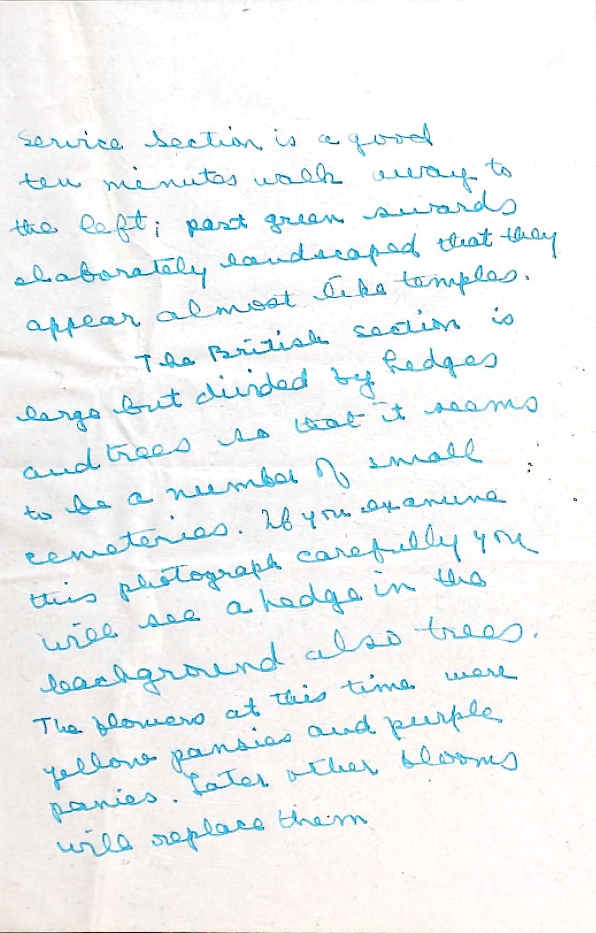 service section is a good
ten minutes walk away to
the left; past green swards
elaborately landscaped that they
appear almost like temples.
The British section is
large but divided by hedges
and trees so that it seems
to be a number of small
cemeteries. If you examine
this photograph carefully you
will see a hedge in the
background also trees.
The flowers at this time were
yellow pansies and purple
panies. Later other blooms
will replace them